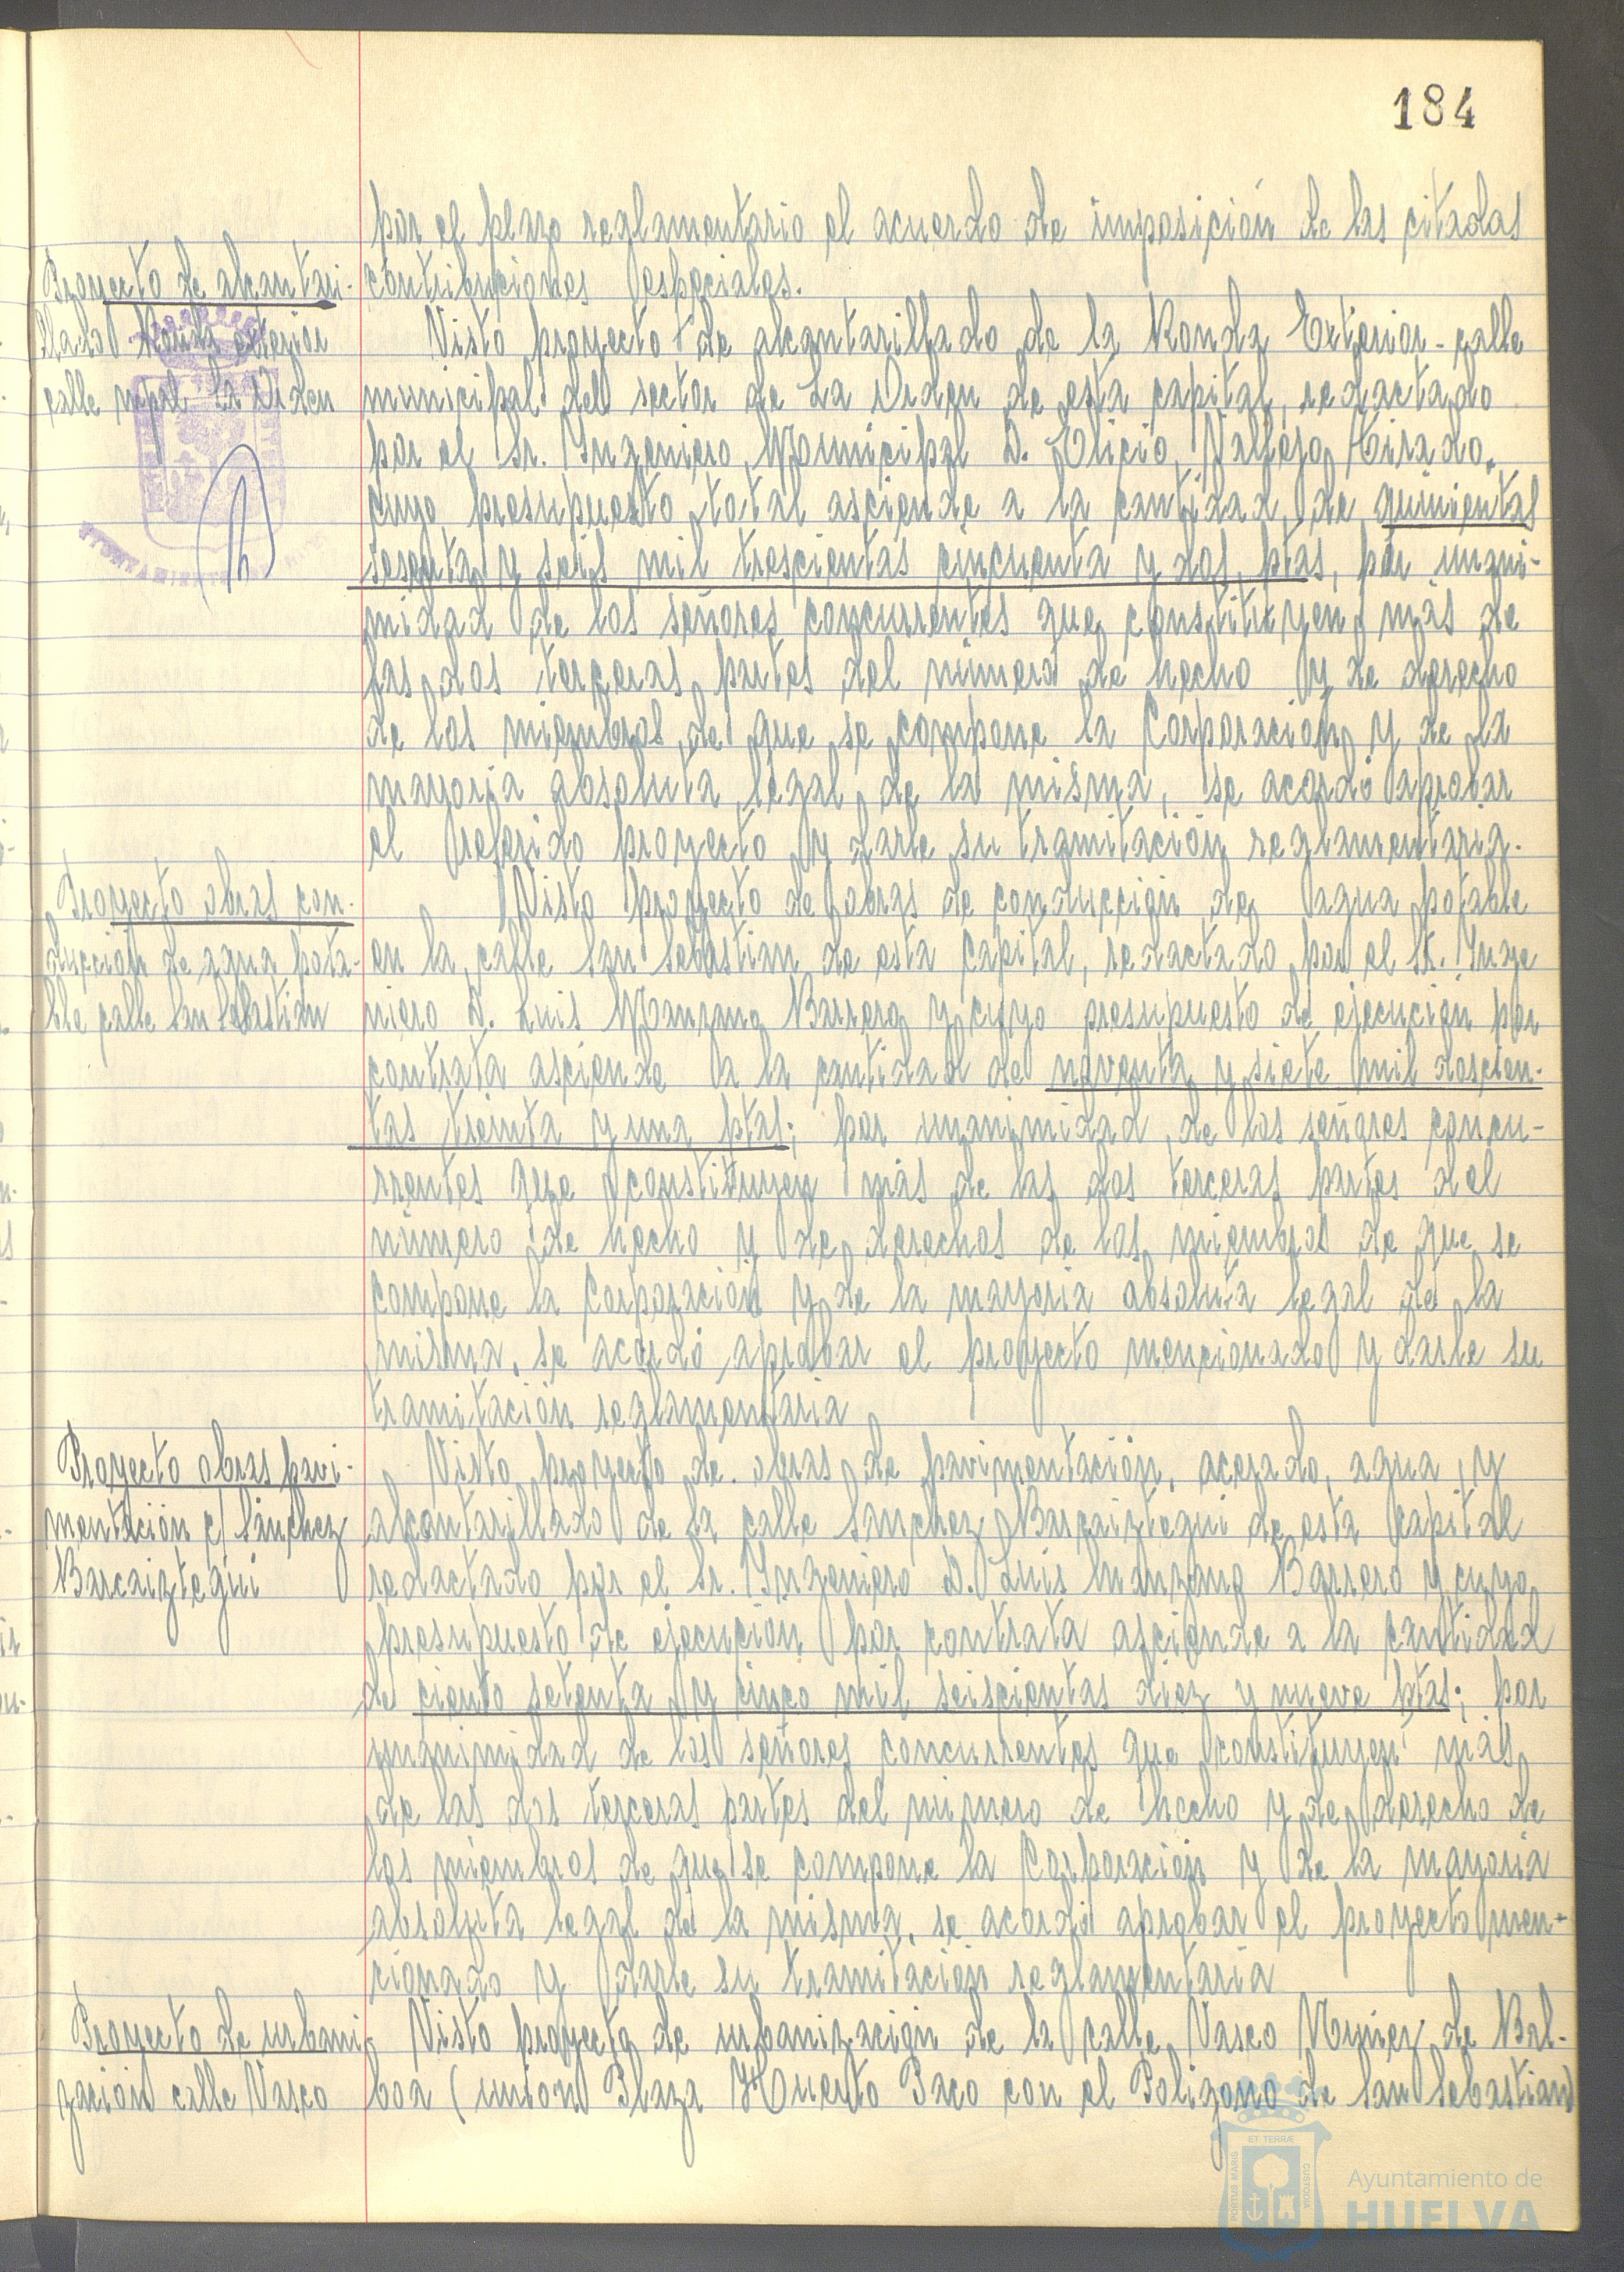 184
por el plazo reglamentario el acuerdo de imposición de las citadas
contribuciones especiales.
Proyecto de alcantari-
llado Ronda exterior
calle mpal La Orden
Visto proyecto de alcantarillado de la Ronda Exterior - calle
municipal del sector de La Orden de esta capital, redactado
por el Sr. Ingeniero Municipal D. Elicio Vallejo Tirado,
cuyo presupuesto total asciende a la cantidad de quinientas
sesenta y seis mil trescientas cincuenta y dos ptas, por unani-
midad de los señores concurrentes que constituyen más de
las dos terceras partes del número de hecho y de derecho
de los miembros de que se compone la Corporación y de la
mayoria absoluta legal de la misma, se acordó aprobar
el referido proyecto y darle su tramitación reglamentaria.
Proyecto obras con-
ducción de agua pota-
ble calle San Sebastian
Visto proyecto de obras de conducción de agua potable
en la calle San Sebastian de esta Capital, redactado por el Sr. Inge
niero D. Luis Manzano Barrero y cuyo presupuesto de ejecución por
contrata asciende a la cantidad de noventa y siete mil doscien-
tas treinta y una ptas; por unanimidad de los señores concu-
rrentes que constituyen más de las dos terceras partes del
número de hecho y de derechos de los miembros de que se
compone la Corporación y de la mayoria absoluta legal de la
misma, se acordó aprobar el proyecto mencionado y darle su
tramitación reglamentaria
Proyecto obras pavi-
mentación c/ Sánchez
Barcaiztegui
Visto proyecto de obras de pavimentación, acerado, agua y
alcantarillado de la calle Sanchez Barcaiztegui de esta Capital
redactado por el Sr. Ingeniero D. Luis Manzano Barrero y cuyo
presupuesto de ejecución por contrata asciende a la cantidad
de ciento setenta y cinco mil seiscientas diez y nueve ptas; por
unanimidad de los señores concurrentes que constituyen más
de las dos terceras partes del número de hecho y de derecho de
los miembros de que se compone la Corporación y de la mayoria
absoluta legal de la misma, se acordó aprobar el proyecto men-
cionado y darle su tramitación reglamentaria
Proyecto de urbani
zación calle Vasco
Visto proyecto de urbanización de la calle Vasco Nuñez de Bal-
boa (unión Plaza Huerto Paco con el Poligono de San Sebastian)
PORTUS MARIS
ET TERRÆ
CUSTODIA
Ayuntamiento de
HUELVA